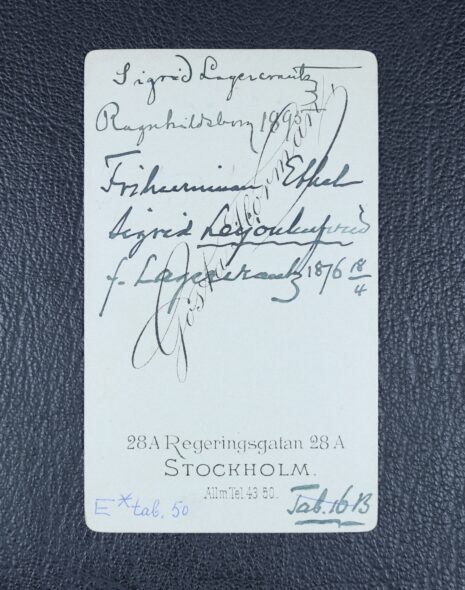 Sigrid Lagercrantz
Ragnhildsborg 1895
Friherrinnan Ethel
Sigrid Leijonhufvud
f. Lagercrantz 1876 18/4
Gösta Florman
28A Regeringsgatan 28A
STOCKHOLM.
Allm.Tel. 43 80.
E* tab. 50
Tab. 16 B